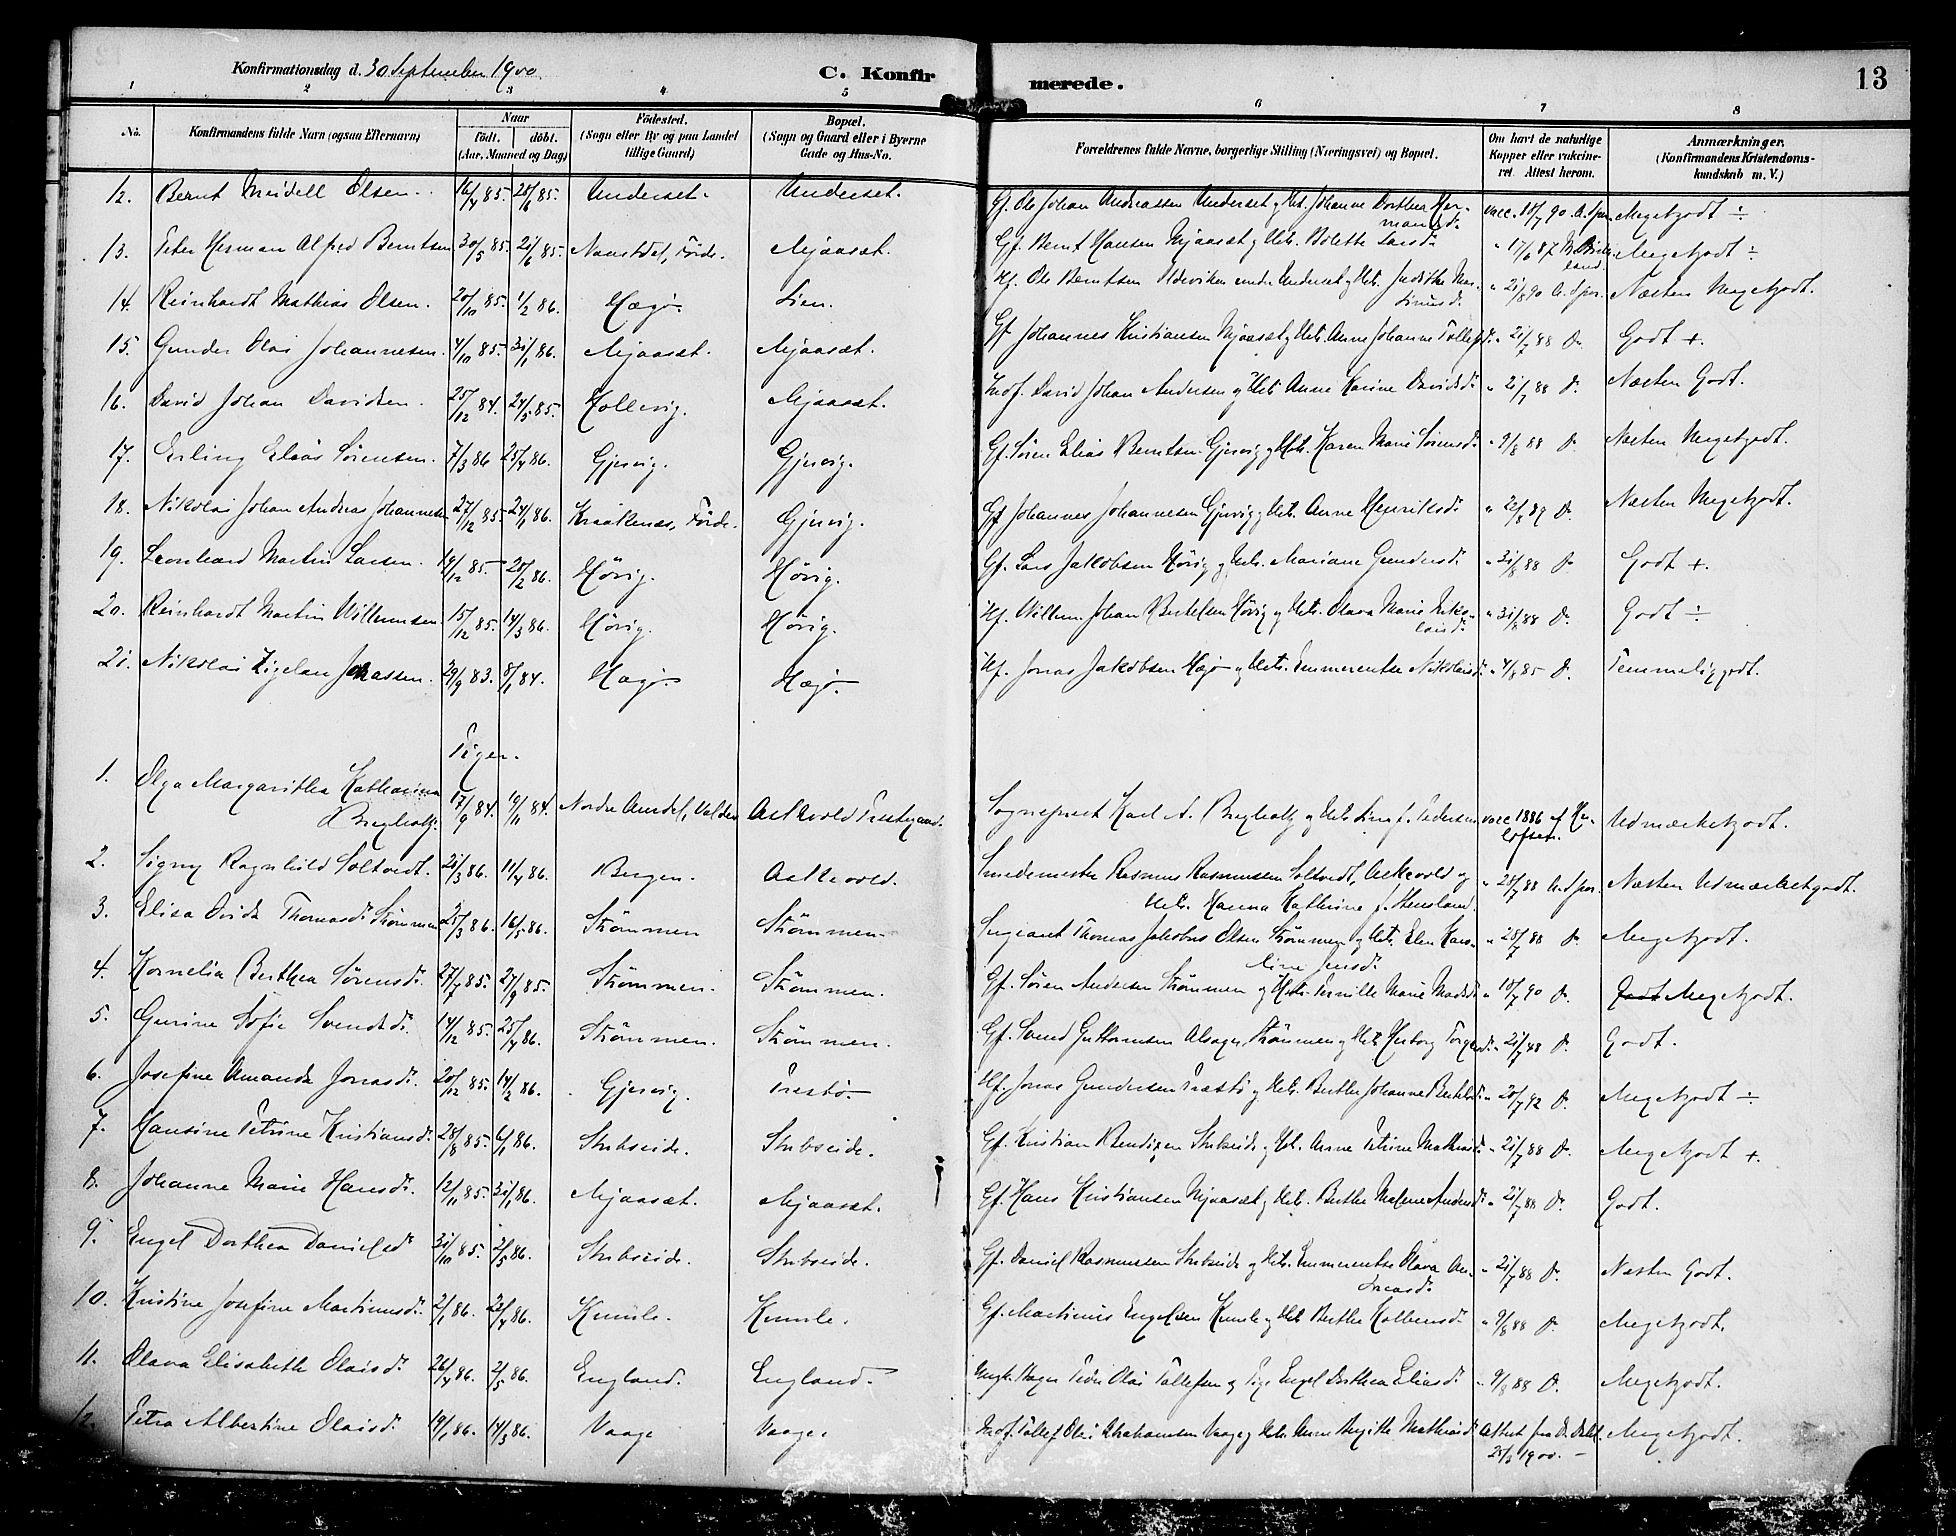 Konfirmationsdag d. 30 September 1900. C. Konfirmerede. 13
1 2 3 4 5 6 7 8
No. Konfirmandens fulde Navn (ogsaa Efternavn) Naar födt. döbt. (Aar, Maaned og Dag) Födested. (Sogn eller By og paa Landet tillige Gaard) Bopæl. (Sogn og Gaard eller i Byerne Gade og Hus-No. Forældrenes fulde Navne, borgerlige Stilling (Næringsvei) og Bopæl. Om havt de naturlige Kopper eller vakcineret. Attest herom. Anmærkninger. (Konfirmandens Kristendomskundskab m. V.)
12. Bernt Meidell Olsen. 16/4 85. 28/6 85. Underset. Underset. Gf. Ole Johan Andreassen Underset og Hst. Johanne Dorthea Hermansd. vacc. 18/7 90 Meget godt ÷
13. Peter Herman Alfred Berntsen 30/5 85. 21/6 85. Naustdal, Förde. Mjaaset. Gf. Bernt Hansen Mjaaset og Hst. Bolette Larsd. " 17/6 87 Meget godt ÷
14. Reinhardt Mathias Olsen. 20/10 85. 1/2 86. Hægö. Lien. Hf. Ole Berntsen under Underset og Hst. Judithe " 21/8 90 Næsten Meget godt.
15. Gunder Olai Johannesen. 4/10 85. 31/1 86. Mjaaset. Mjaaset. Gf. Johannes Kristiansen Mjaaset og Hst. Anne Johanne Tollefsd. " 21/7 88 D. Godt +.
16. David Johan Davidsen. 25/12 84. 24/5 85. Hollevig. Mjaaset. Indf. David Johan Andersen og Hst. Anne Karine Davidsd. " 21/7 88 D. Næsten Godt.
17. Erling Elias Sörensen. 7/3 86 25/4 86. Gjervig. Gjervig. Gf. Sören Elias Berntsen Gjervig og Hst. Karen Marie Sörensd. " 9/8 88 D. Næsten Meget godt.
18. Nikolai Johan Andreas Johannesen 27/12 85. 24/1 86. Kraakenes, Förde. Gjervig. Gf. Johannes Johannesen Gjervig og Hst. Anne Henriksd. " 22/8 89 D. Næsten Meget godt.
19. Leonhard Martin Larsen. 19/12 85. 28/2 86. Hövig. Hövig. Gf. Lars Jakobsen Hövig og Hst. Mariane Gundersd. " 31/8 88 D. Godt +.
20. Reinhardt Martin Willumsen 15/12 85. 14/3 86. Hövig. Hövig. Hf. Willum Johan Bertelsen Hövig og Hst. Olava Marie Nikolaisd. " 31/8 88 D. Godt ÷
21. Nikolai Zigelau Jonassen. 29/9 83. 8/1 84. Hægö. Hægö. Hf. Jonas Jakobsen Hægö og Hst. Emmerentse Nikolaisd. " 4/8 85 D. Temmelig godt.
Piger.
1. Olga Margaritha Katharina Bugholtz. 17/9 84. 19/11 84. Nordre Aurdal, Valders Askvold Prestegaard. Sogneprest Karl A. Bugholtz og Hst. Pedersen vacc. 1886 af Udmærket godt.
2. Signy Ragnhild Soltvedt. 21/3 86. 11/4 86. Bergen. Askevold. Smedemester Rasmus Rasmussen Soltvedt, Askevold og Hst. Hanna Kathrine f. Stensland. " 28/7 88 Næsten Udmærket godt.
3. Elisa Ovida Thomasd. Strömmen 25/3 86. 16/5 86. Strömmen Strömmen. Sergeant Thomas Jakobus Olsen Strömmen og Hst. Elen Karoline Jensd. " 28/7 88 D. Meget godt.
4. Kornelia Berthea Sörensd. 27/7 85. 27/9 85. Strömmen. Strömmen. Gf. Sören Andersen Strömmen og Hst. Pernille Marie Madsd. " 18/7 90 D. Godt Meget godt.
5. Gurine Sofie Svendsd. 14/12 85. 25/4 86. Strömmen. Strömmen. Gf. Svend Guttormsen Alsager, Strömmen og Hst. Herborg Torgersd. " 21/7 88 D. Godt.
6. Josefine Amanda Jonasd. 20/12 85. 14/2 86. Gjervig. Prestö. Hf. Jonas Gundersen Præstö og Hst. Berthe Johanne Bertelsd. " 20/7 92 D. Meget godt ÷
7. Hansine Petrine Kristiansd. 28/8 85. 6/1 86. Stubseide. Stubseide. Gf. Kristian Bendixen Stubseide og Hst. Anne Petrine Mathiasd. " 21/7 88 D. Meget godt +.
8. Johanne Marie Hansd. 12/11 85. 31/1 86. Mjaaset. Mjaaset. Gf. Hans Kristiansen Mjaaset og Hst. Berthe Malene Andersd. " 21/7 88 D. Godt.
9. Engel Dorthea Danielsd 31/10 85. 2/5 86. Stubseide. Stubseide. Gf. Daniel Rasmussen Stubseide og Hst. Emmerentse Olava Andreasd. " 21/7 88 D. Næsten Godt.
10. Kristine Josefine Martinusd. 2/1 86. 25/4 86. Kumle. Kumle. Gf. Martinus Engelsen Kumle og Hst. Berthe Kolbensd. " 9/8 88 D. Meget godt.
11. Olava Elisabeth Olaisd. 26/4 86. 2/5 86. England. England. Ungk. Peder Olai Tollefsen og Pige Engel Dorthea Eliasd. " 9/8 88 D. Meget godt.
12. Petra Albertine Olaisd. 19/1 86. 14/3 86. Vaage Vaage. Indf. Tollef Olai Abrahamsen Vaage og Hst. Anne Birgitte Mathiasd. Attest fra Dr. 25/3 1900. Meget godt.